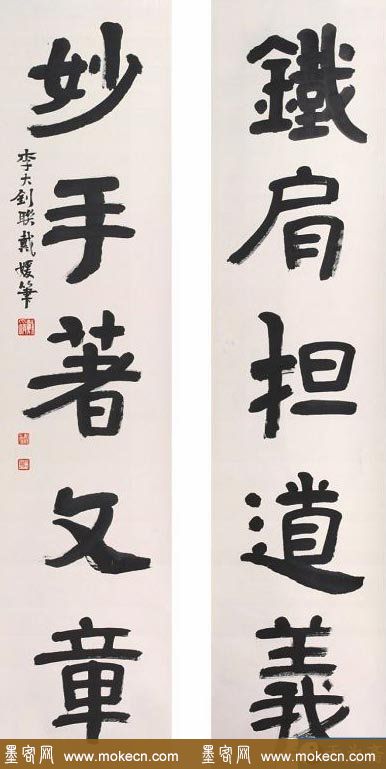 鐵肩担道義
妙手著文章
李大釗联戴媛筆
墨客网 www.mokecn.com
墨客网 www.mokecn.com